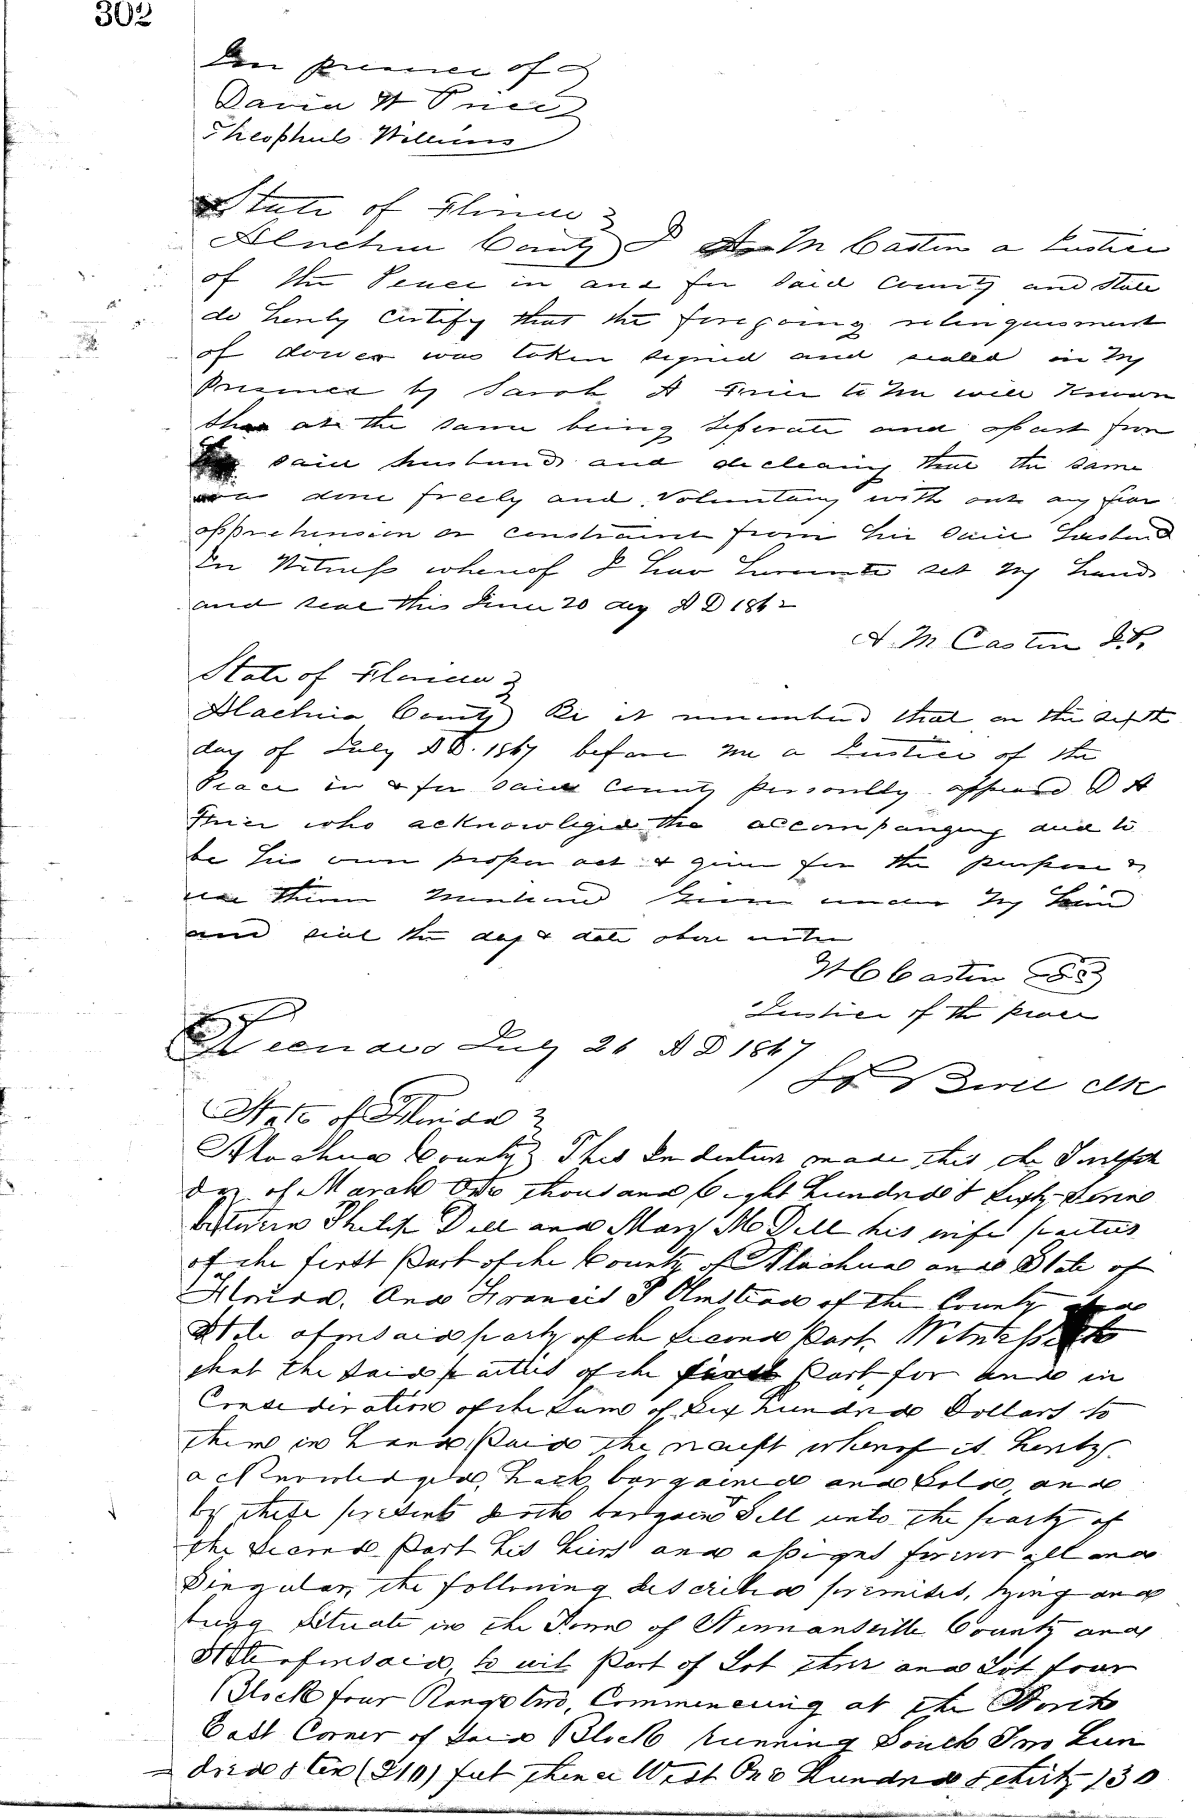 302
In presence of
David W Price
Theophuls Williams
State of Florida
Alachua County I A M Caston a Justice
of the Peace in and for Said County and State
do hereby Certify that the foregoing relinquisment
of dower was taken signed and sealed in My
Presence by Sarah A to Me well Known
that at the same being Seperate and apart from
said husband and declearing that the same
was done freely and Voluntary with out any fear
apprehension or constraint from her Said husband
In Witness whereof I hav hereunto set My hand
and seal this June 20 day A D 1862
A. M Caston J.P.
State of Florida
Alachua County Be it remembered that on the
day of July A D. 1867 before me a Justice of the
Peace in & for said County personlly appeard D A
who acknowliged the accompanyeng deed to
be his own proper act & given for the purpose &
use therin Mentioned Given under My hand
and seal the day & date above
Caston
Justice of the peace
July 26 A D 1867
Bevill Clk
State of Florida
Alachua County This Indenture made this the Twelfth
day of March One thousand Eight hundred & Sixty-Seven
between Philip Dell and Mary M Dell his wife parties
of the first Part of the County of Alachua and State of
Florida. And Francis P Olmstead of the County and
State aforesaid party of the Second Part. Witnesseth
that the Said parties of the first Part, for and in
Consideration of the Sum of Six hundred Dollars to
them in hand Paid the receipt whereof is hereby
acknowledged, hath bargained and Sold, and
by these presents doth bargain & Sell unto the party of
the Second Part his heirs and assigns forever all and
Singular, the following described premises, lying and
being Situate in the Town of Newnansville County and
State aforesaid, to wit Part of Lot three and Lot four
Block four Range two, Commencing at the North
East Corner of Said Block running South Two hun
dred & ten (210) feet thence West One hundred & thirty 130